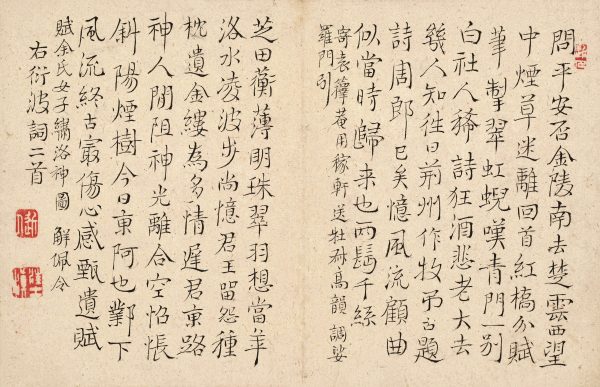 問平安否金陵南去楚雲西望
中煙草迷離回首紅橋分賦
筆掣翠虹蜺嘆青門一別
白社人稀詩狂酒悲老大去
幾人知往日荊州作牧弔古題
詩周郎已矣憶風流顧曲
似當時歸来也兩鬢千絲
寄袁籜菴用稼軒送杜尗高韻 調婆
羅門引
芝田蘅薄明珠翠羽想當年
洛水凌波步尚憶君王留怨種
枕遺金縷為多情遲君東路
神人閒阻神光離合空怊悵
斜陽煙樹今日東阿也鄴下
風流終古最傷心感甄遺賦
賦余氏女子繡洛神圖 解佩令
右衍波詞二首